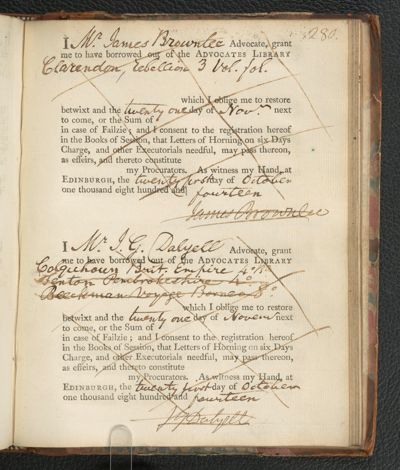 280.
I Mr. James Brownlee Advocate, grant
me to have borrowed out of the ADVOCATES LIBRARY
Clarendon, Rebellion 3 Vol. fol.
which I oblige me to restore
betwixt and the twenty one day of Nov.r next
to come, or the Sum of
in case of Failzie; and I consent to the registration hereof
in the Books of Session, that Letters of Horning on six Days
Charge, and other Executorials needful, may pass thereon,
as effeirs, and thereto constitute
my Procurators. As witness my Hand, at
EDINBURGH, the twenty first day of October
one thousand eight hundred and fourteen
James Brownlee
I Mr. J. G. Dalyell Advocate, grant
me to have borrowed out of the ADVOCATES LIBRARY
Colquhoun Brit. Empire 4o
Fenton Pembrokeshire 4o
Beeckman Voyage Borneo 8o
which I oblige me to restore
betwixt and the twenty one day of Novem next
to come, or the Sum of
in case of Failzie; and I consent to the registration hereof
in the Books of Session, that Letters of Horning on six Days
Charge, and other Executorials needful, may pass thereon,
as effeirs, and thereto constitute
my Procurators. As witness my Hand, at
EDINBURGH, the twenty first day of October
one thousand eight hundred and fourteen
J G Dalyell